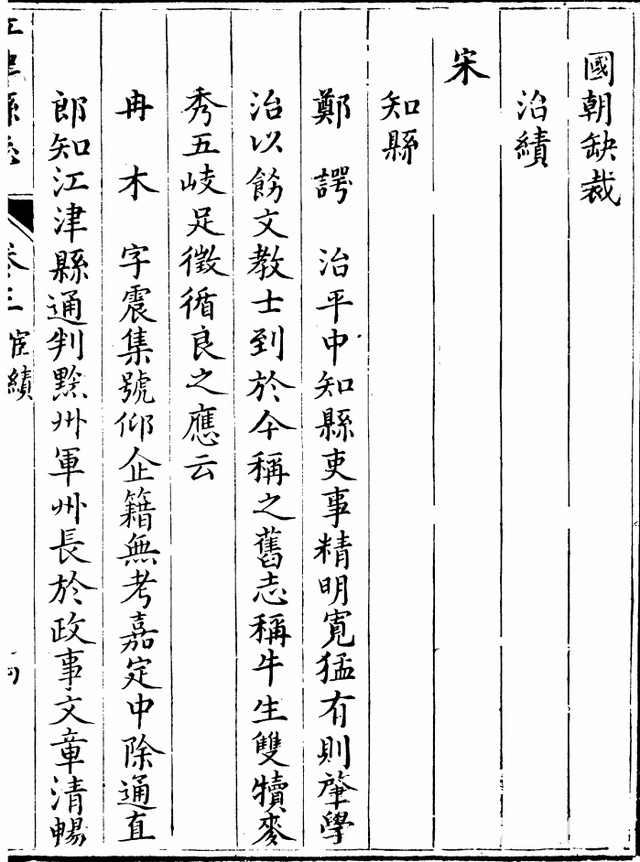 國朝缺裁
治績
宋
知縣
鄭 諤 治平中知縣吏事精明寬猛有則肇學
治以飭文教士到於今稱之舊志稱牛生雙犢麥
秀五岐足徵循良之應云
冉 木 字震集號仰企籍無考嘉定中除通直
郎知江津縣通判黔州軍州長於政事文章清暢
江津縣志
卷三 宦績